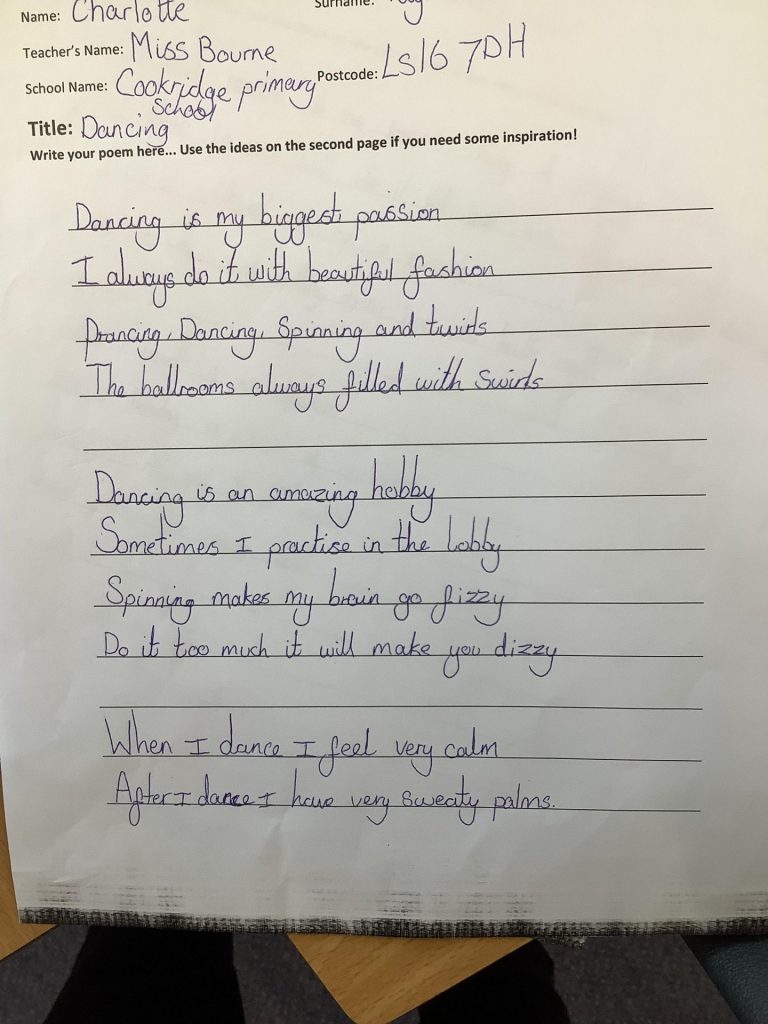 Name: Charlotte Surname:
Teacher's Name: Miss Bourne
School Name: Cookridge primary School Postcode: LS16 7DH
Title: Dancing
Write your poem here... Use the ideas on the second page if you need some inspiration!
Dancing is my biggest passion
I always do it with beautiful fashion
Prancing, Dancing, Spinning and twirls
The ballrooms always filled with swirls
Dancing is an amazing hobby
Sometimes I practise in the lobby
Spinning makes my brain go fizzy
Do it too much it will make you dizzy
When I dance I feel very calm
After I dance I have very sweaty palms.